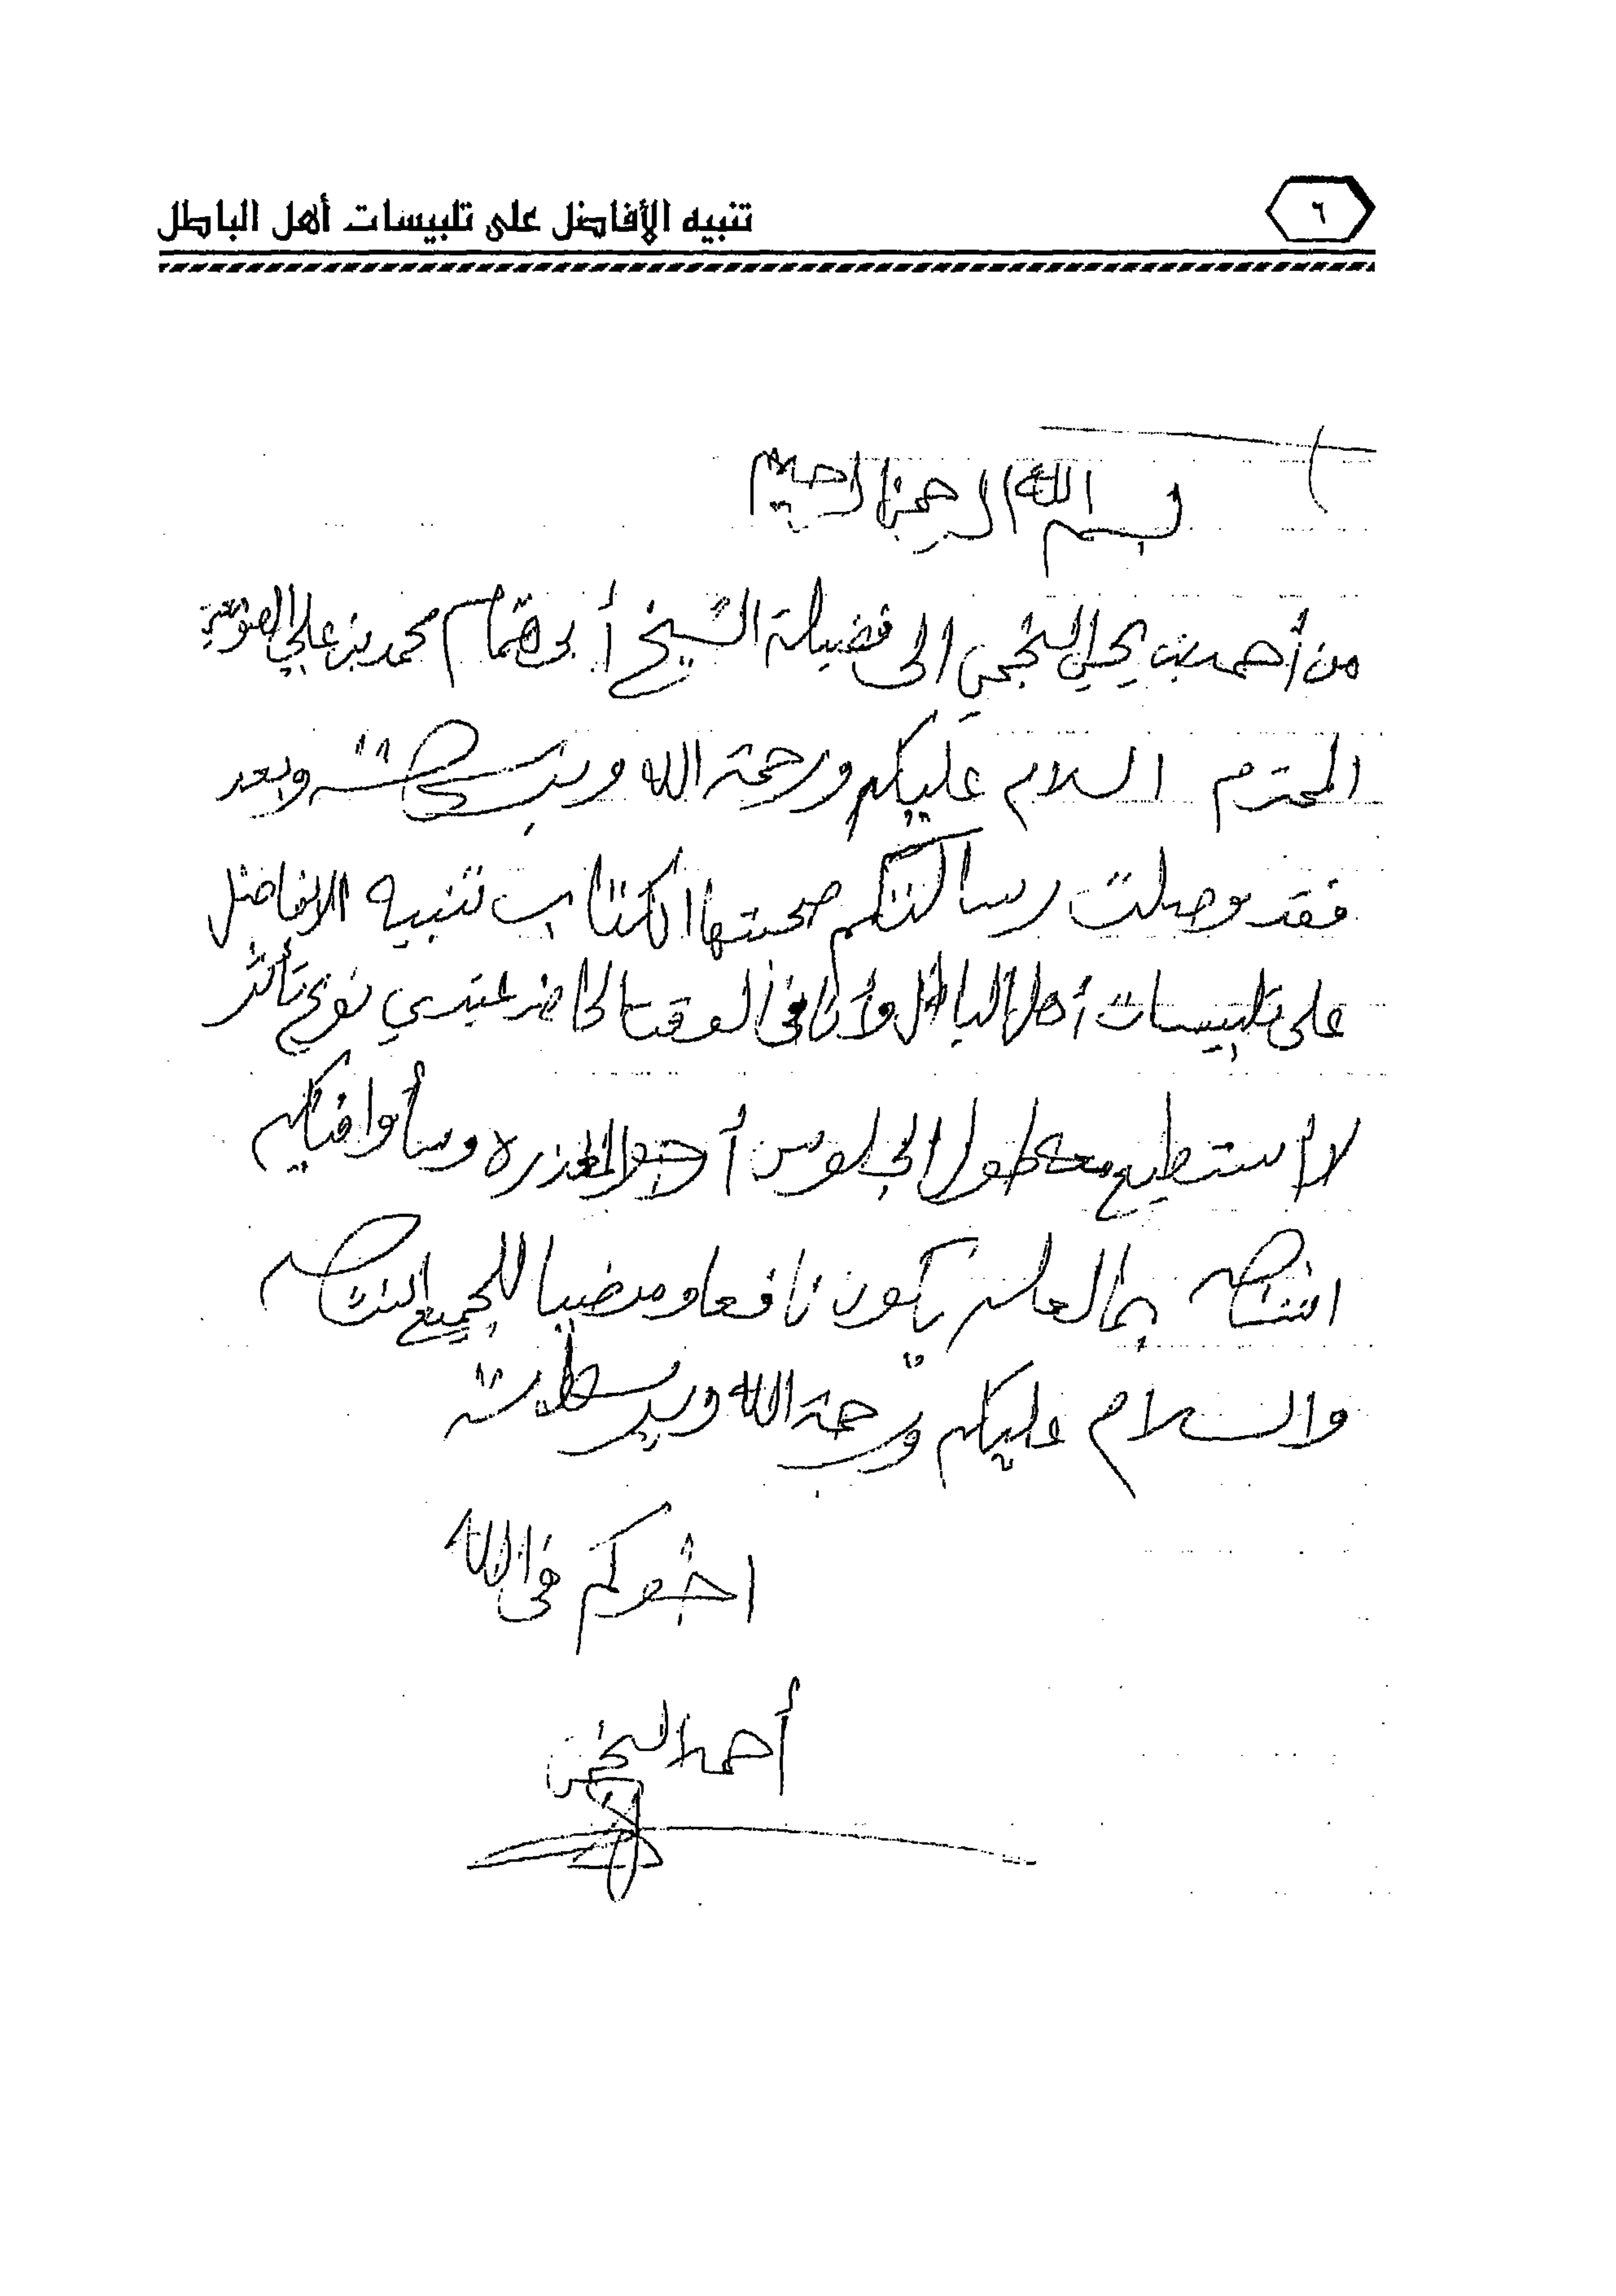 ٦
تنبيه الأفاضل على تلبيسات أهل الباطل
بسم الله الرحمن الرحيم
من أحمد بن يحيى النجمي الى فضيلة الشيخ أبى همام محمد بن علي الصومعي
المحترم السلام عليكم ورحمة الله وبركاته وبعد
فقد وصلت رسالتكم صحبتها الكتاب تنبيه الافاضل
على تلبيسات أهل الباطل وأنا في الوقت الحاضر عندي نوع تأثر
لا استطيع معه طول الجلوس أرجو المعذره وسأوافيكم
انشاء الله بما لعله يكون نافعا ومرضيا للجميع انشاء الله
والسلام عليكم ورحمة الله وبركاته
اخوكم في الله
أحمد النجمي